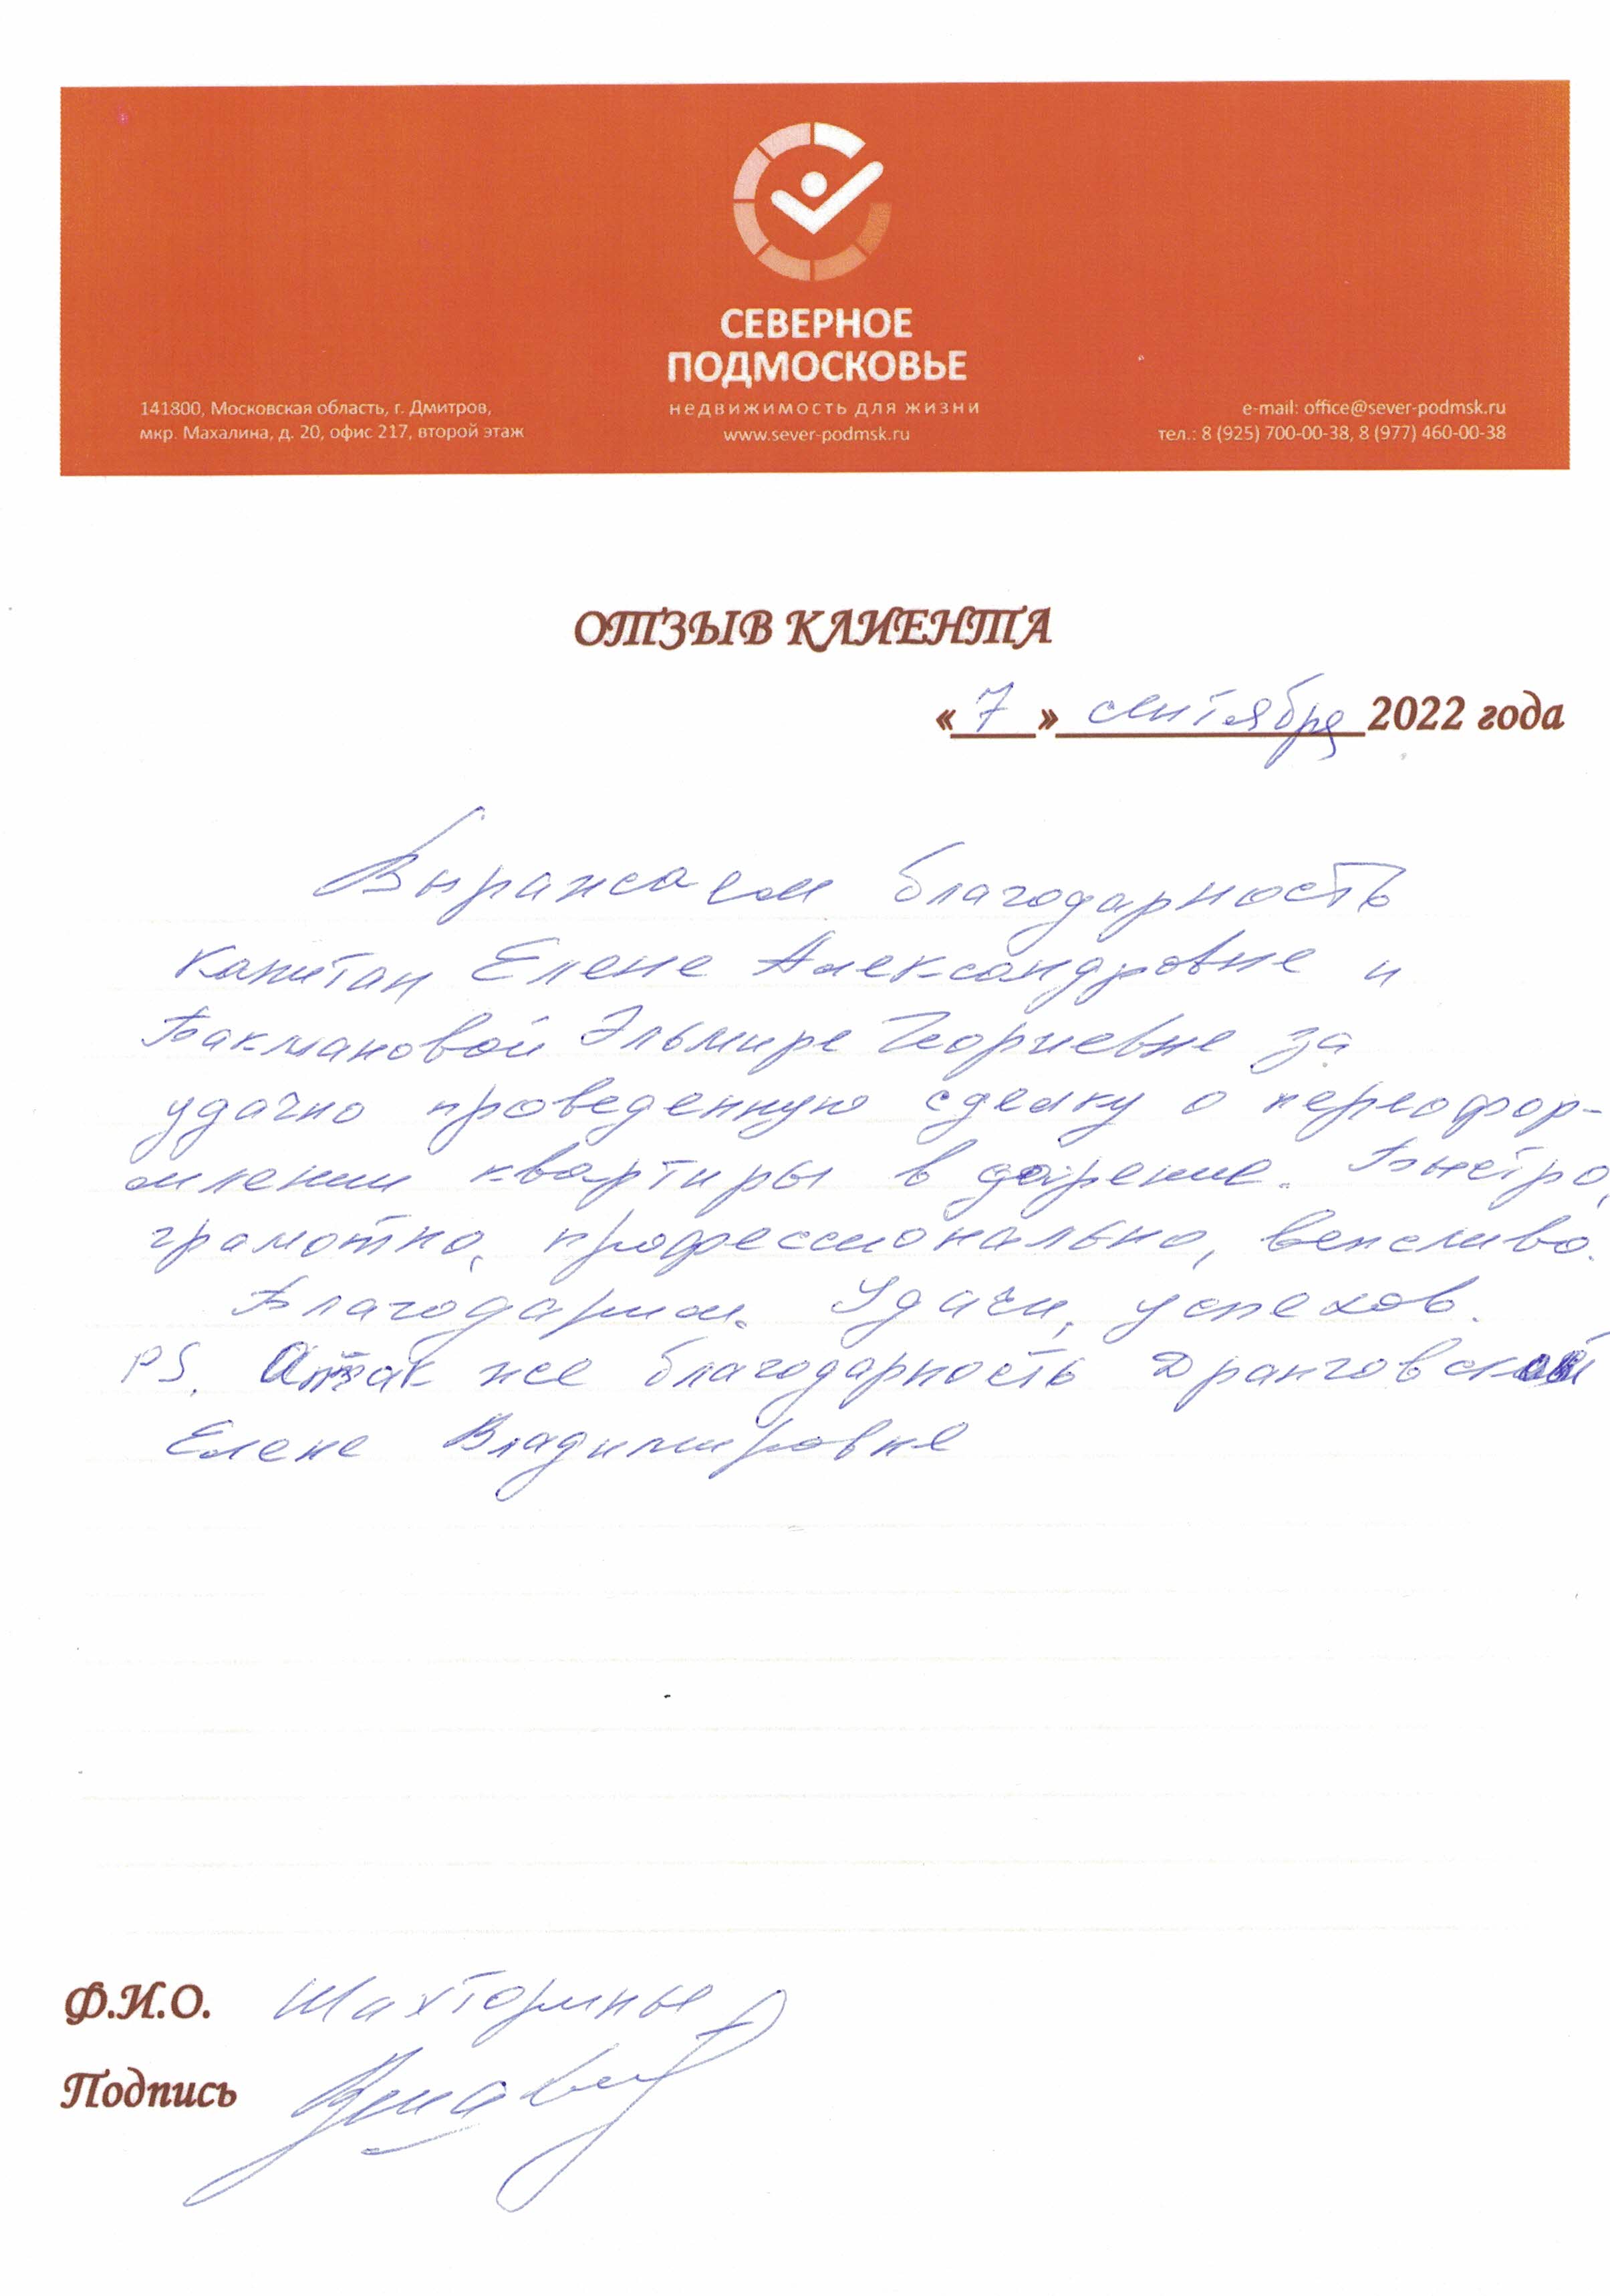 СЕВЕРНОЕ
ПОДМОСКОВЬЕ
недвижимость для жизни
www.sever-podmsk.ru
141800, Московская область, г. Дмитров,
мкр. Махалина, д. 20, офис 217, второй этаж
e-mail: office@sever-podmsk.ru
тел.: 8 (925) 700-00-38, 8 (977) 460-00-38
ОТЗЫВ КЛИЕНТА
«7» сентября 2022 года
Выражаем благодарность
Капитан Елене Александровне и
Бакмановой Эльмире Георгиевне за
удачно проведенную сделку о переофор-
млении квартиры в дарение. Быстро,
грамотно, профессионально, вежливо.
Благодарим. Удачи, успехов.
PS. А так же благодарность Дранговской
Елене Владимировне
Ф.И.О. Шахторины
Подпись